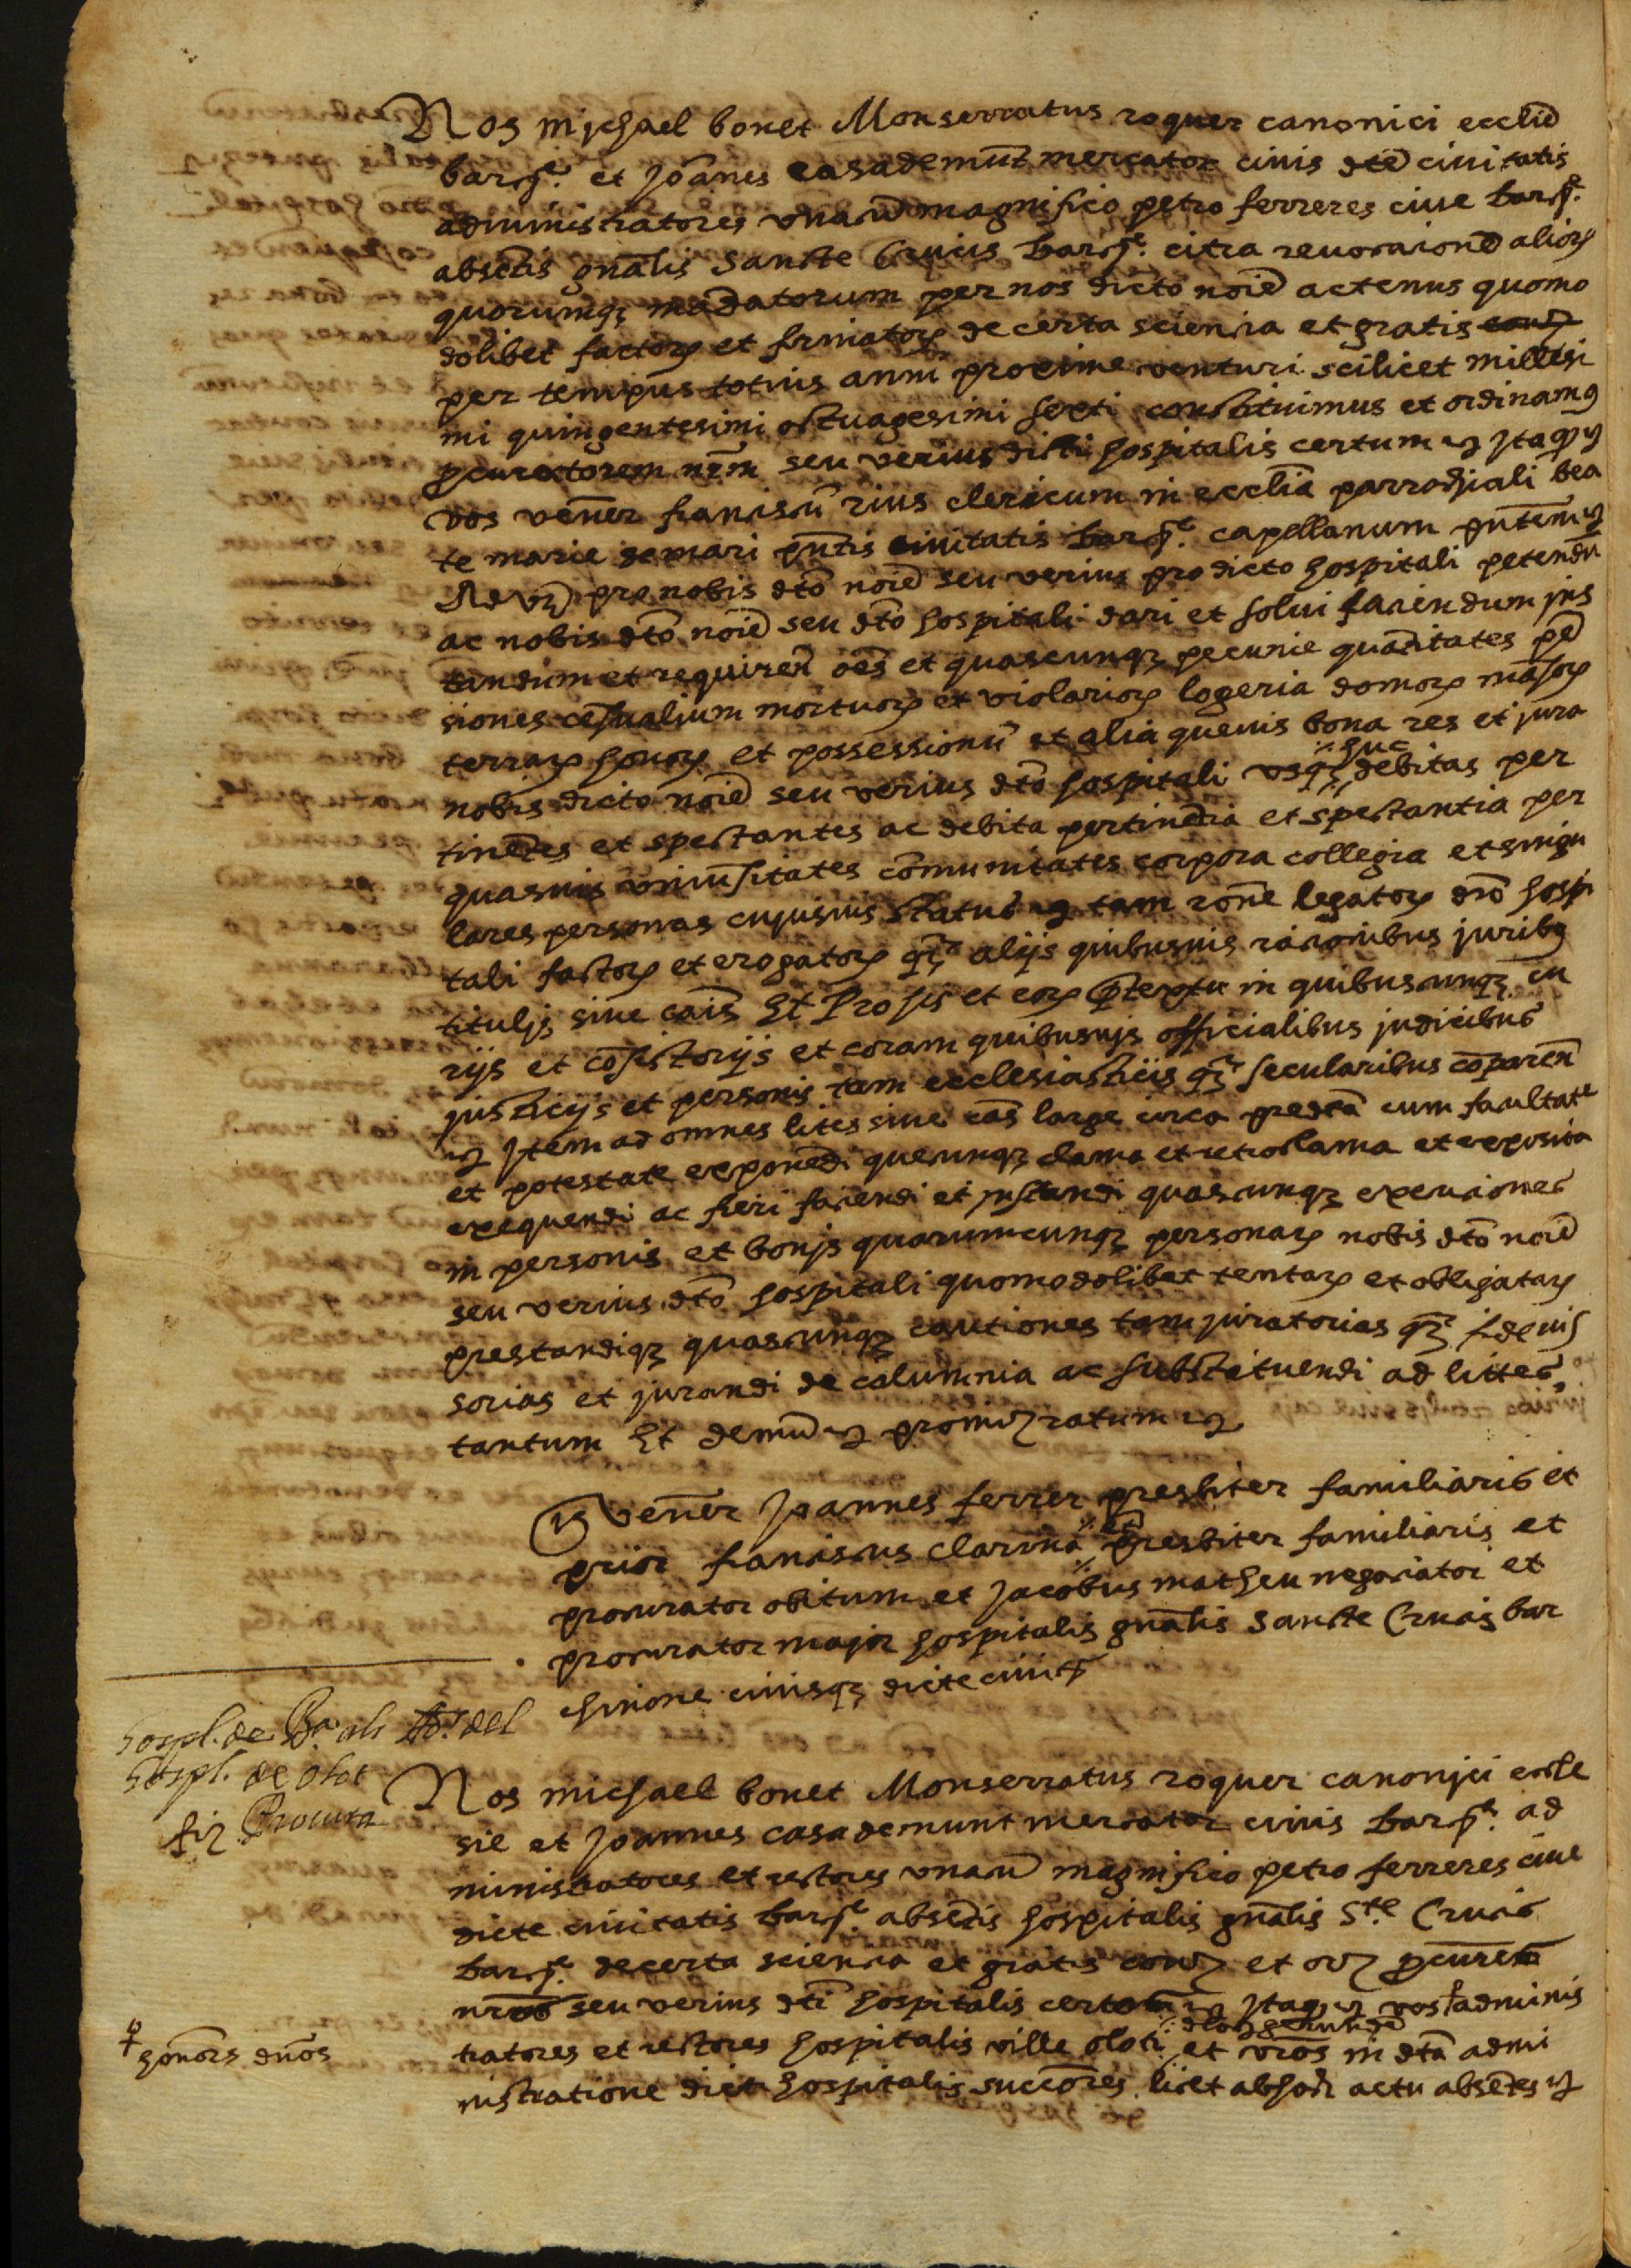 Nos Michael bonet Monserratus roquer canonici ecclīe
barcῆe. et Joānes casademūt mercator civis dte civitatis
administratores unacū magnifico petro ferreres cive barcῆe.
absētis gn̄alis Sancte Crucis barcῆe. citra revocacionē alioꝝ
quorumqꝫ mādatorum per nos dicto noīe actenus quomo
dolibet factoꝝ et firmatoꝝ de certa sciencia et gratis
per tempus totius anni proxime venturi scilicet millesi
mi quingentesimi octuagesimi sexti constituimus et ordinamꝰ
ꝓcuratorem nr̄m seu verius dicti hospitalis certum ⁊c Ita qꝫ ⁊c
vos vener̄ franciscū rius clericum in ecclīa parrochiali bea
te marie de mari pn̄tis civitatis barcῆe. capellanum pn̄tem ⁊c
Ad vꝫ pro nobis dto noīe seu verius pro dicto hospitali petendū
ac nobis dto noīe seu dto hospitali dari et solvi faciendum ins
tandum et requiren̄ oēs et quascunqꝫ pecunie quātitates pē
siones cēsualium mortuoꝝ et violarioꝝ logeria domoꝝ māsoꝝ
terraꝝ honoꝝ et possessionū et alia quevis bona res et jura
nobis dicto noīe seu verius dto hospitali usqꝫ huc debitas per
tinētes et spectantes ac debita pertinētia et spectantia per
quasvis univ̄sitates comunitates corpora collegia et singu
lares personas cujusvis status ⁊c tam rōne legatoꝝ dto hospi
tali factoꝝ et erogatoꝝ qꝫ alijs quibusvis racionibus juribꝰ
titulis sive cāis Et Pro his et eoꝝ p̄textu in quibuscunqꝫ cu
rijs et cōsistorijs et coram quibusvis officialibus judicibus
justicijs et personis tam ecclesiasticis qꝫ secularibus cōparen̄
⁊c Item ad omnes lites sive cās large circa predcā cum facultate
et potestate exponēdi quecunqꝫ clama et retroclama et exposita
exequendi ac fieri faciendi et instandi quascunqꝫ execuciones
in personis et bonis quarumcunqꝫ personaꝝ nobis dto noīe
seu verius dto hospitali quomodolibet tentaꝝ et obligataꝝ
prestandiqꝫ quascunqꝫ cautiones tam juratorias qꝫ fideius
sorias et jurandi de calumnia ac substituendi ad lites
tantum Et demū ⁊c promiꝫ ratum ⁊c
Tꝫ vener̄ Joannes ferrer presbiter familiaris et
prior franciscus clarina etiā presbiter familiaris et
procurator obituum et Jacobus matheu negociator et
procurator major hospitalis gn̄alis Sancte Crucis bar
chinone civisqꝫ dicte civitῆ
hospl. de Ba. als Ad. del
hospl. de olot
fiꝫ Procura
Nos michael bonet Monserratus roquer canonici eccle
sie et Joannes casademunt mercator civis barcῆe. ad
ministratores et rectores unacū magnifico petro ferreres cive
dicte civitatis barcῆe absētis hospitalis gn̄alis Ste. Crucis
barcῆe. de certa sciencia et gratis conꝫ et orꝫ ꝓcurem
nros seu verius dti hospitalis certos ⁊c Ita qꝫ ⁊c vos ♀adminis
tratores et rectores hospitalis ville oloti et vrōs in dta admi
nistratione dicti hospitalis succōres licet absn̄ actu absētes ⁊c
♀ honors dnōs